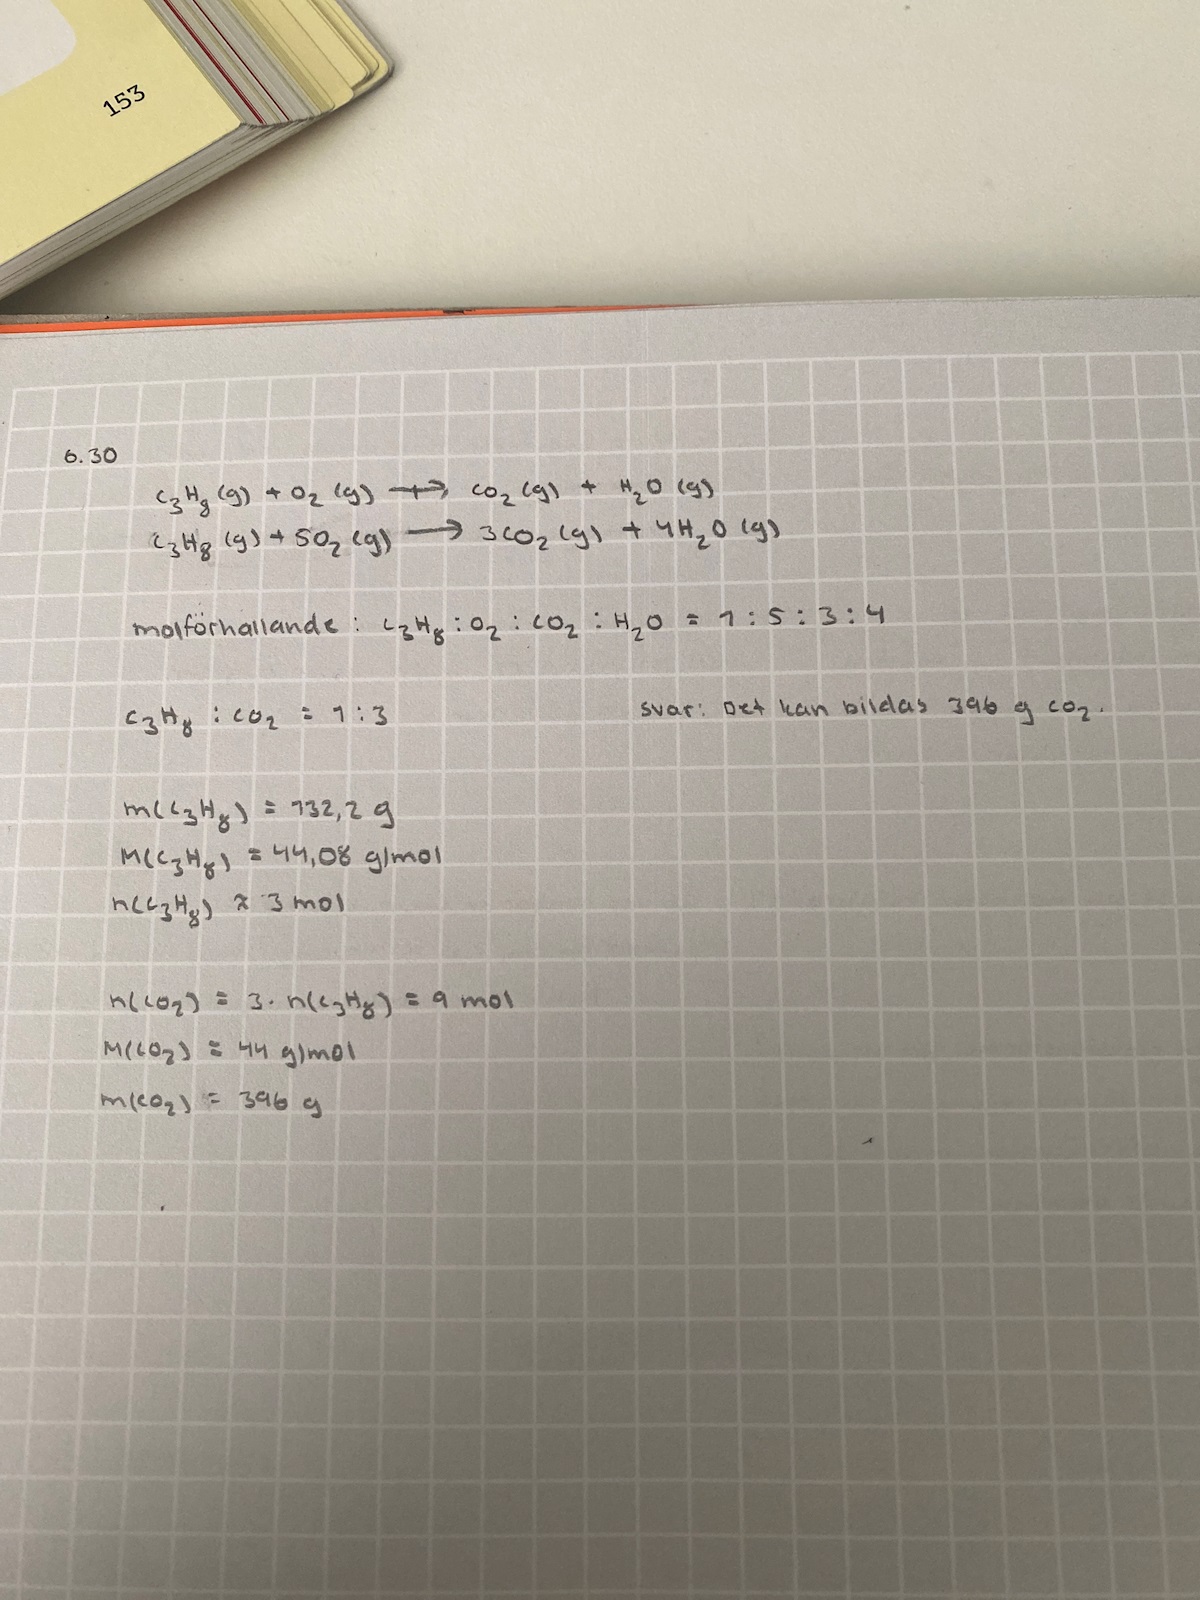 153
6.30
C₃H₈(g) + O₂(g) ⟶ CO₂(g) + H₂O(g)
C₃H₈(g) + 5O₂(g) ⟶ 3CO₂(g) + 4H₂O(g)
molförhållande : C₃H₈ : O₂ : CO₂ : H₂O = 1 : 5 : 3 : 4
C₃H₈ : CO₂ = 1 : 3
svar: Det kan bildas 396 g CO₂.
m(C₃H₈) = 132,2 g
M(C₃H₈) = 44,08 g/mol
n(C₃H₈) ≈ 3 mol
n(CO₂) = 3 · n(C₃H₈) = 9 mol
M(CO₂) = 44 g/mol
m(CO₂) = 396 g